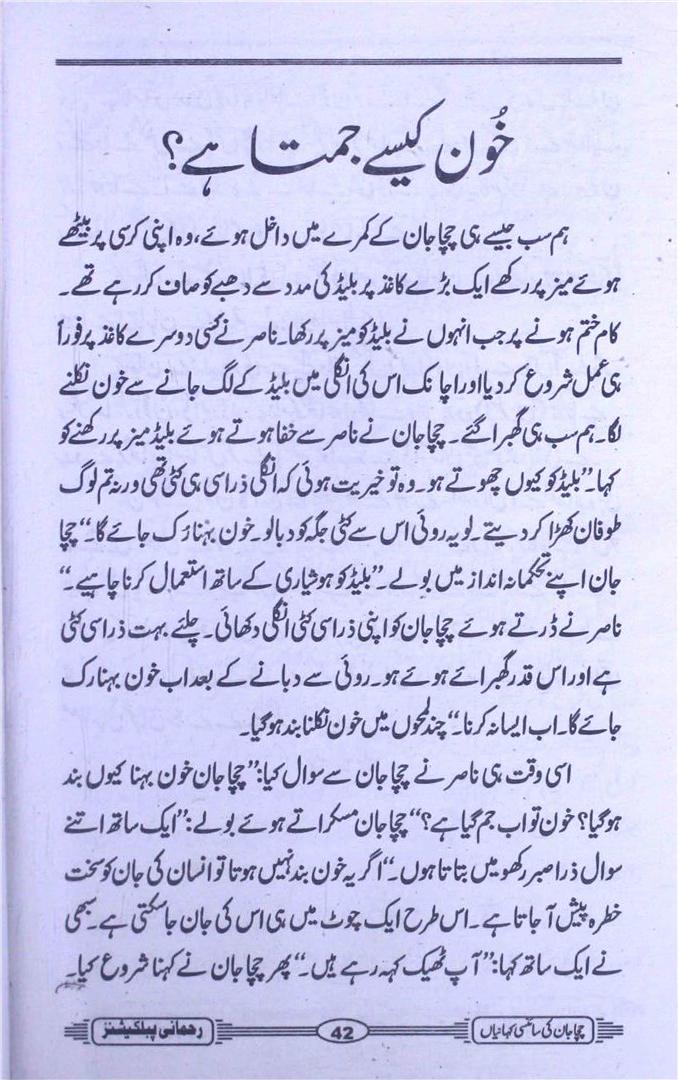 خُون کیسے جمتا ہے؟
ہم سب جیسے ہی چچا جان کے کمرے میں داخل ہوئے، وہ اپنی کرسی پر بیٹھے
ہوئے میز پر رکھے ایک بڑے کاغذ پر بلیڈ کی مدد سے دھبے کو صاف کر رہے تھے۔
کام ختم ہونے پر جب انہوں نے بلیڈ کو میز پر رکھا۔ ناصر نے کسی دوسرے کاغذ پر فوراً
ہی عمل شروع کر دیا اور اچانک اس کی انگلی میں بلیڈ کے لگ جانے سے خون نکلنے
لگا۔ ہم سب ہی گھبرا گئے۔ چچا جان نے ناصر سے خفا ہوتے ہوئے بلیڈ میز پر رکھنے کو
کہا۔ ”بلیڈ کو کیوں چھوتے ہو۔ وہ تو خیریت ہوئی کہ انگلی ذرا سی ہی کٹی تھی ورنہ تم لوگ
طوفان کھڑا کر دیتے۔ لو یہ روئی اس سے کٹی جگہ کو دبا لو۔ خون بہنا رُک جائے گا۔“ چچا
جان اپنے تحکمانہ انداز میں بولے۔ ”بلیڈ کو ہوشیاری کے ساتھ استعمال کرنا چاہیے۔“
ناصر نے ڈرتے ہوئے چچا جان کو اپنی ذرا سی کٹی انگلی دکھائی۔ چلئے بہت ذرا سی کٹی
ہے اور اس قدر گھبرائے ہوئے ہو۔ روئی سے دبانے کے بعد اب خون بہنا رک
جائے گا۔ اب ایسا نہ کرنا۔“ چند لمحوں میں خون نکلنا بند ہو گیا۔
اسی وقت ہی ناصر نے چچا جان سے سوال کیا: ”چچا جان خون بہنا کیوں بند
ہو گیا؟ خون تو اب جم گیا ہے؟“ چچا جان مسکراتے ہوئے بولے: ”ایک ساتھ اتنے
سوال ذرا صبر رکھو میں بتاتا ہوں۔“ اگر یہ خون بند نہیں ہوتا تو انسان کی جان کو سخت
خطرہ پیش آ جاتا ہے۔ اس طرح ایک چوٹ میں ہی اس کی جان جا سکتی ہے۔ سبھی
نے ایک ساتھ کہا: ”آپ ٹھیک کہہ رہے ہیں۔“ پھر چچا جان نے کہنا شروع کیا۔
چچا جان کی سائنسی کہانیاں 42 رحمانی پبلیکیشنز